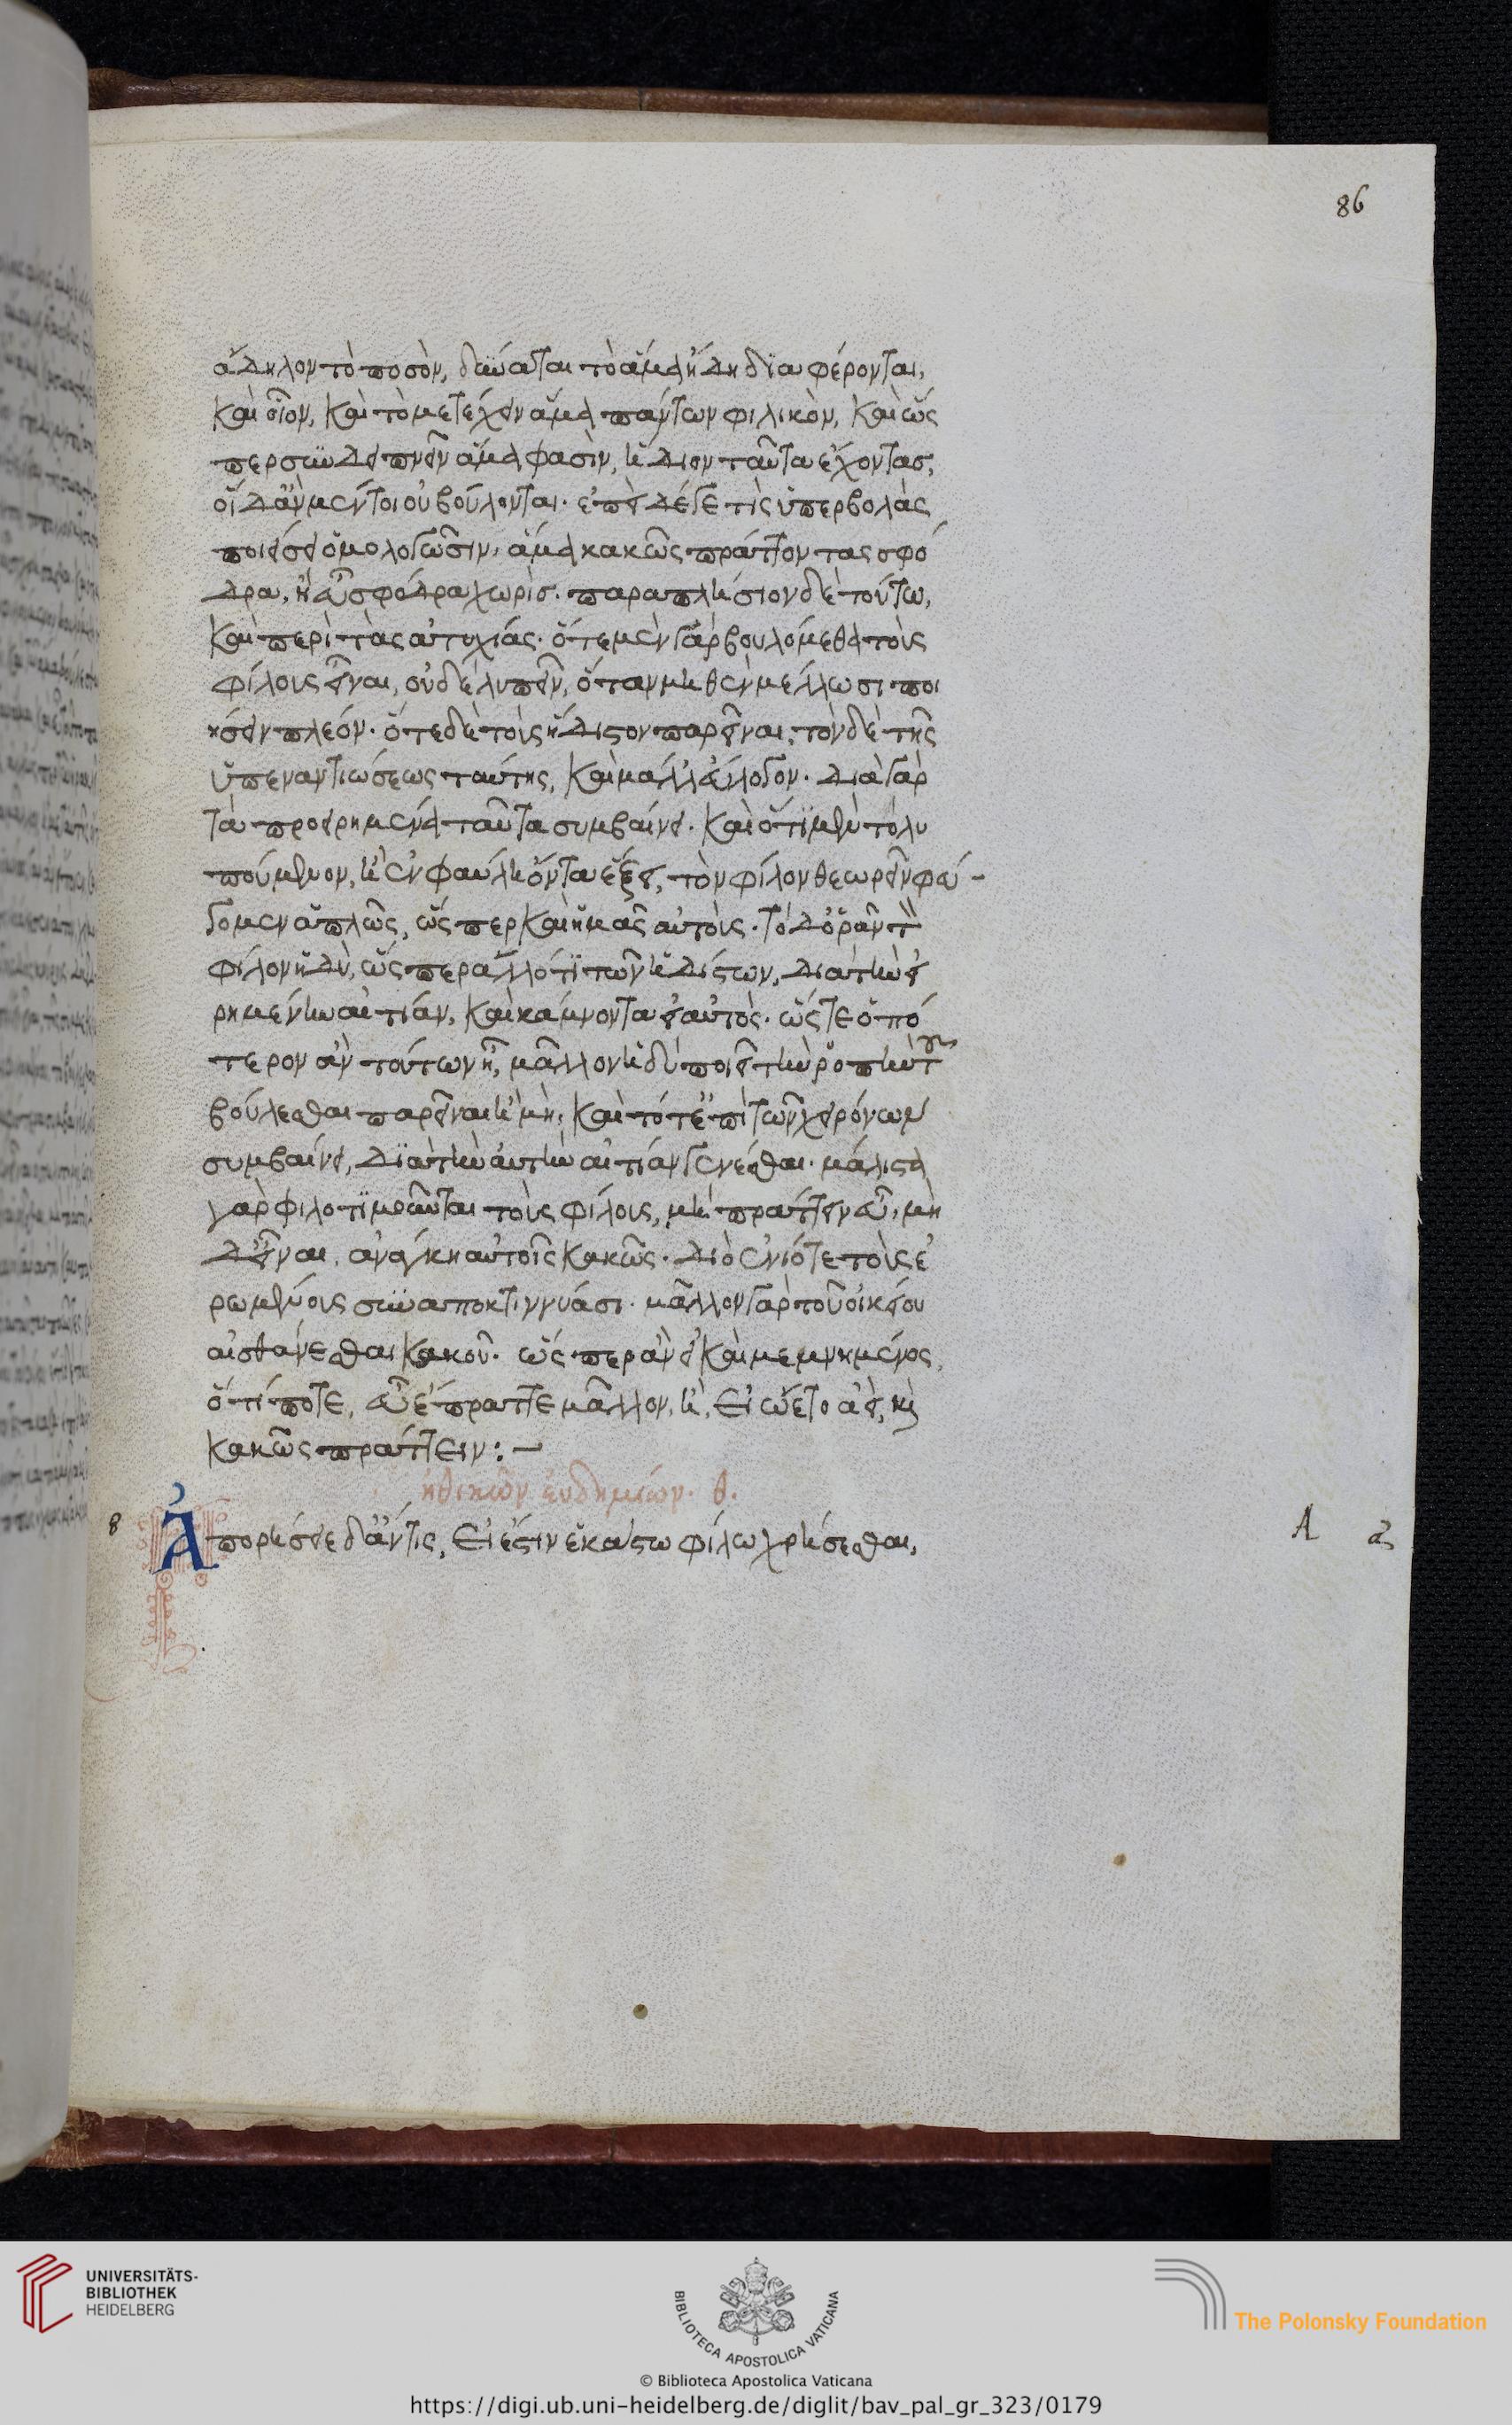 86
ἄδηλον τὸ ποσὸν, δύναται τὸ ἅμα ἤδη διαφέρονται,
καὶ οἷον, καὶ τὸ μετέχειν ἅμα πάντων φιλικὸν, καὶ ὥς
περ συνδειπνεῖν ἅμα φασὶν, ἥδιον ταῦτα ἔχοντας,
οἵ δ' ἂν μέντοι οὐ βούλονται· ἐπεὶ δέ γε τὶς ὑπερβολὰς
ποιέσει ὁμολογῶσιν, ἅμα κακῶς πράττοντας σφό
δρα, ἢ εὖ σφόδρα χωρὶς. παραπλήσιον δὲ τούτω,
καὶ περὶ τὰς ἀτυχίας· ὅτε μὲν γὰρ βουλόμεθα τοὺς
φίλους εἶναι, οὐδὲ λυπεῖν, ὅταν μηθὲν μέλλωσι ποι
ήσειν πλέον. ὅτε δὲ τοὺς ἥδιστον παρεῖναι, τὸν δὲ τῆς
ὑπεναντιώσεως ταύτης, καὶ μάλλ' εὔλογον. διὰ γὰρ
τὰ προειρημένα ταῦτα συμβαίνει. καὶ ὅτι μὲν τὸ λυ
πούμενον, ἢ ἐν φαύλη ὄντα ἕξει, τὸν φίλον θεωρεῖν φεύ-
γομεν ἁπλῶς, ὥς περ καὶ ἡμᾶς αὐτοὺς. τὸ δ' ὁρᾶν τὸν
φίλον ἡδὺ, ὥς περ ἄλλό τι τῶν ἡδίστων, διὰ τὴν εἰ
ρημένην αἰτίαν, καὶ κάμνοντα εἰ αὐτὸς. ὥς τε ὁπό
τερον ἂν τούτων ἦ, μᾶλλον ἡδὺ ποιεῖ τὴν ῥοπὴν τοῦ
βούλεσθαι παρεῖναι ἢ μὴ, καὶ τότε ἐπὶ τῶν χειρόνων
συμβαίνει, διὰ τὴν αὐτὴν αἰτίαν γενέσθαι. μάλιστα
γὰρ φιλοτιμοῦνται τοὺς φίλους, μὴ πράττειν εὖ, μη
δ' εἶναι, ἀνάγκη αὐτοῖς κακῶς. διὸ ἐνίοτε τοὺς ἐ
ρωμένους συναποκτιννύασι. μᾶλλον γὰρ τοῦ οἰκείου
αἰσθάνεσθαι κακοῦ. ὥς περ ἂν εἰ καὶ μεμνημένος,
ὅτι ποτε, εὖ ἔπραττε μᾶλλον, ἢ, εἰ ᾤετο ἀεὶ, καὶ
κακῶς πράττειν :-
ἠθικῶν εὐδημίων. θ.
8 Ἀπορήσειε δ' ἄν τις, εἰ ἔστιν ἑκάστω φίλω χρήσεσθαι, A
UNIVERSITÄTS-
BIBLIOTHEK
HEIDELBERG
BIBLIOTECA APOSTOLICA VATICANA
The Polonsky Foundation
© Biblioteca Apostolica Vaticana
https://digi.ub.uni-heidelberg.de/diglit/bav_pal_gr_323/0179